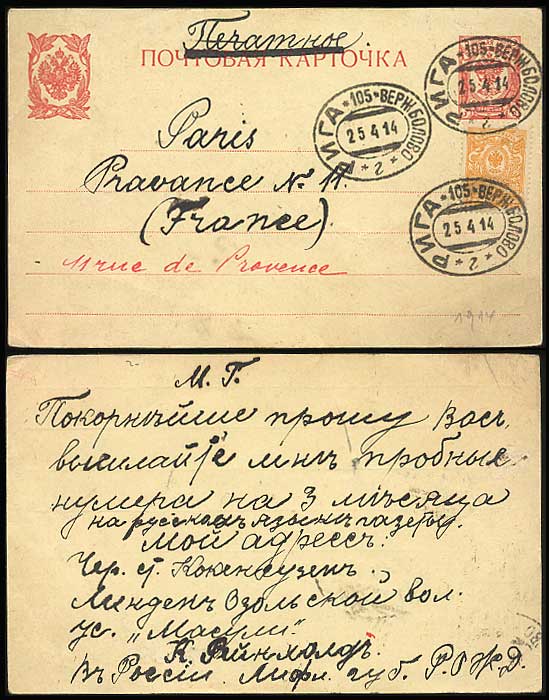 Печатное
ПОЧТОВАЯ КАРТОЧКА
РИГА *105* ВЕРЖБОЛОВО * 2 *
25 4 14
РИГА *105* ВЕРЖБОЛОВО * 2 *
25 4 14
РИГА *105* ВЕРЖБОЛОВО * 2 *
25 4 14
Paris
Pravance N. 11.
(France)
11 rue de Provence
1914
М. Г.
Покорнѣйше прошу Васъ
высилайте мнѣ пробные
нумера на 3 мѣсяца
на русскомъ языкѣ газеты.
Мой адрессъ:
Чер. ст. Кокенгузенъ.
Линденъ Озольской вол.
ус. „Масули"
К. Рейнхолдъ
въ Россіи. Лифл. губ. Р.О.Ж.Д.